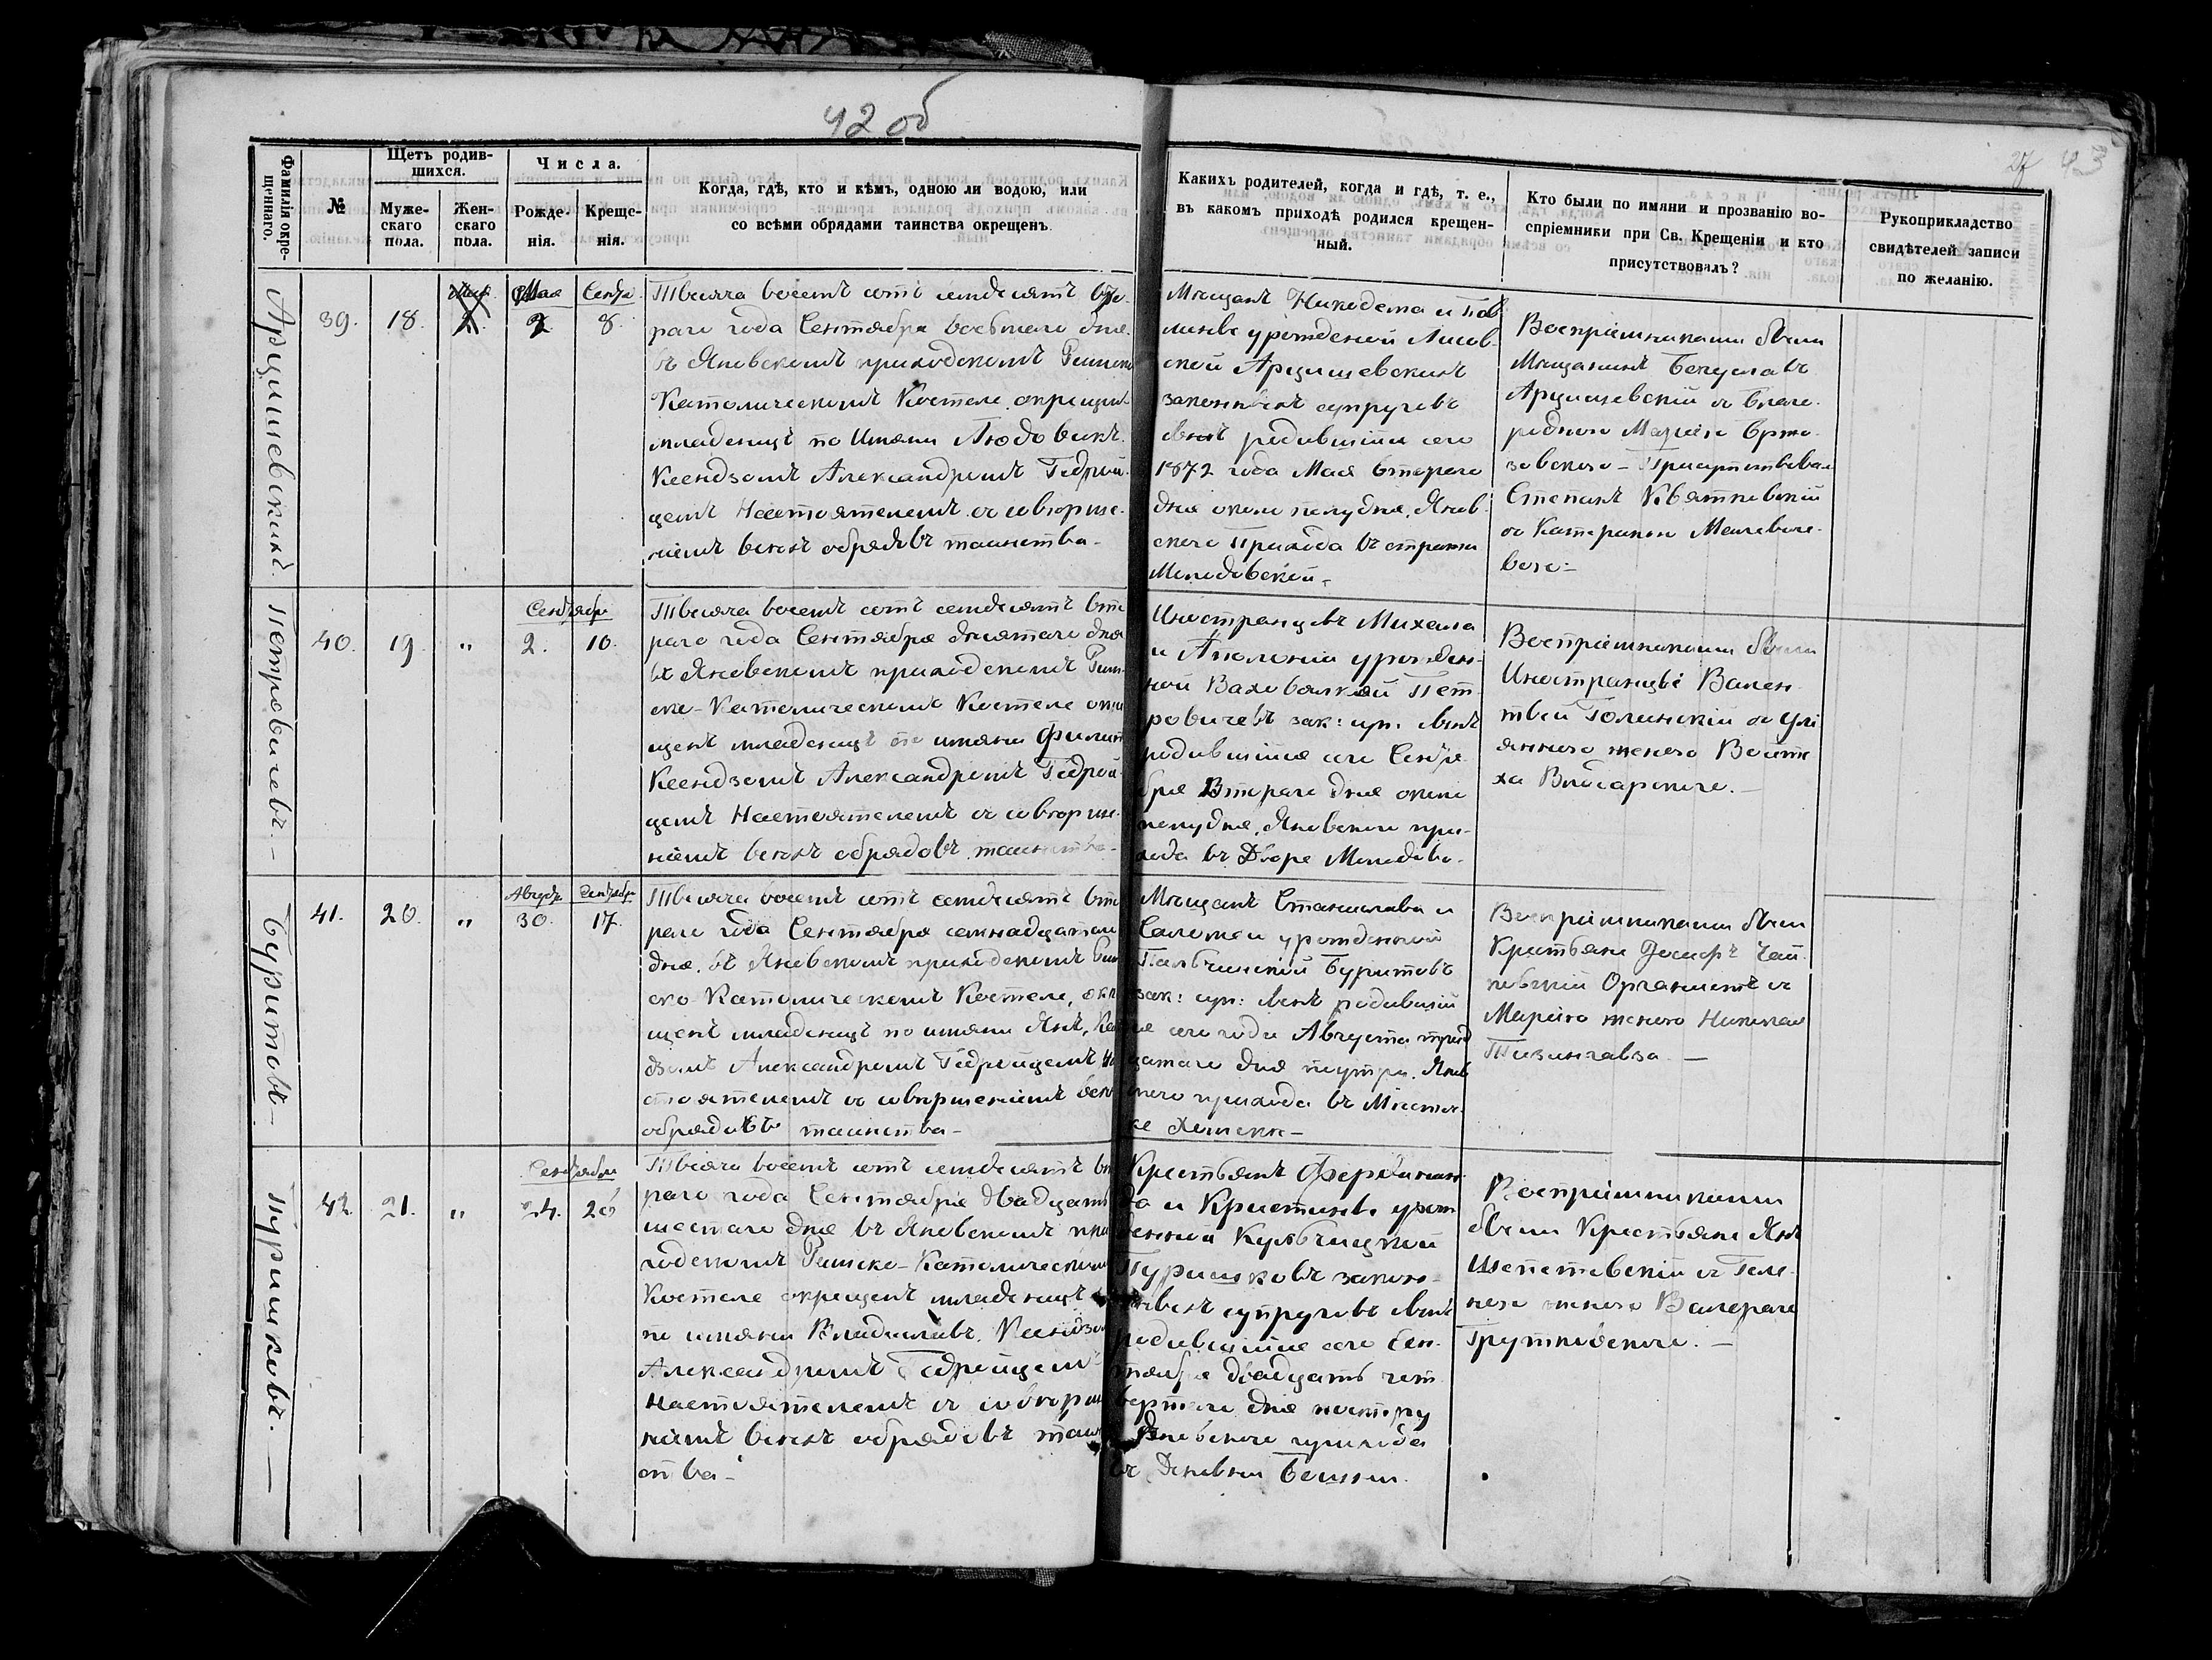 42 об
27 43
Фамилія окре-
щеннаго.
№
Щетъ родив-
шихся.
Муже-
скаго
пола.
Жен-
скаго
пола.
Числа.
Рожде-
нія.
Креще-
нія.
Когда, гдѣ, кто и кѣмъ, одною ли водою, или
со всѣми обрядами таинства окрещенъ.
Какихъ родителей, когда и гдѣ, т. е.,
въ какомъ приходѣ родился крещен-
ный.
Кто были по имяни и прозванію во-
спріемники при Св. Крещеніи и кто
присутствовалъ?
Рукоприкладство
свидѣтелей записи
по желанію.
Арцишевскихъ.
39.
18.
Мая
2
Сентя.
8.
Тысяча восемь сотъ семдесятъ вто-
раго года Сентября восьмаго дня
въ Яновскомъ приходскомъ Римско
Католическомъ Костеле окрещенъ
младенецъ по Имяни Людовикъ.
Ксендзомъ Александромъ Гедрой-
цемъ Настоятелемъ съ соверше-
ніемъ всехъ обрядовъ таинства-
Мещанъ Никодема и Пав
лины урожденой Лисов-
ской Арцишевскихъ
законныхъ супруговъ
сынъ родившійся сего
1872 года Мая втораго
дня около полудня, Янов-
скаго Прихода въ стражи
Молодовской-
Воспріемниками были
Мещанинъ Богуславъ
Арцишевскій съ Благо-
родною Маріею Вржо-
зовскою - Присутствовал
Степанъ Квятковскій
съ Катериною
вою-
Петровичевъ-
40.
19.
"
Сентябр
2.
10.
Тысяча восемь сотъ семдесятъ вто
раго года Сентября десятаго дня
въ Яновскомъ приходскомъ Рим-
ско-Католическомъ Костеле окре
щенъ младенецъ по имяни Филип
Ксендзомъ Александромъ Гедрой-
цемъ Настоятелемъ съ соверше-
ніемъ всехъ обрядовъ таинства-
Иностранцовъ Михала
и Аполоніи урожден-
ной Пет-
ровичевъ зак: суп: сынъ
родившійся сего Сентя-
бря Втораго дня около
полудня, Яновскаго при-
хода въ Дворе Молодово-
Воспріемниками были
Иностранцы Вален-
тый Голинскій съ Ули
янною женою Войте
ха
Буритовъ-
41.
20.
"
Август
30.
Сентябр
17.
Тысяча восемь сотъ семдесятъ вто
раго года Сентября семнадцатаго
дня, въ Яновскомъ приходскомъ Рим
ско Католическомъ Костеле, окре
щенъ младенецъ по имяни Янъ, Ксен
дзомъ Александромъ Гедройцемъ На
стоятелемъ съ совершеніемъ всех
обрядовъ таинства-
Мещанъ Станислава и
Саломеи урожденной
Буритовъ
зак: суп: сынъ родившій
ся сего года Августа трид
цатаго дня поутру, Янов
скаго прихода въ Местеч-
ке Хомске-
Воспріемниками были
Крестьяне Чай-
ковскій Органистъ съ
Маріею женою Николая
-
Туришковъ.-
42.
21.
"
Сентября
24.
26
Тысяча восемь сотъ семдесятъ вто
раго года Сентября двадцать
шестаго дня въ Яновскомъ при
ходскомъ Римско-Католическомъ
Костеле окрещенъ младенецъ
по имяни Владиславъ, Ксендзом
Александромъ Гедройцемъ
Настоятелемъ съ соверше
ніемъ всехъ обрядовъ таин
ства-
Крестьянъ Фердинан-
да и Кристины урож
денной Кульбицкой
Туришковъ закон-
ныхъ супруговъ сынъ
родившійся сего Сен-
тября двадцать чет-
вертаго дня поутру
Яновскаго прихода
въ Деревни
Воспріемниками
были Крестьяне Янъ
Шепетовскій съ Геле-
ною женою Валерага
.-